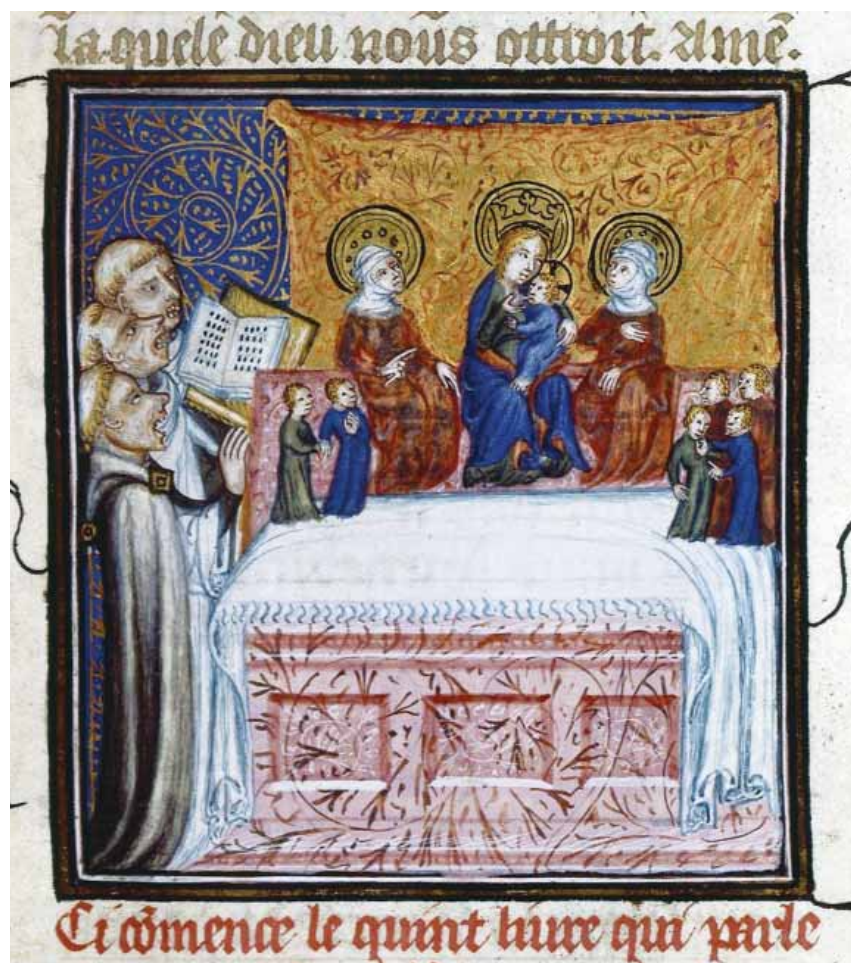 la quele dieu nous ottroit. Amē.
Ci cōmence le quint liure qui parle